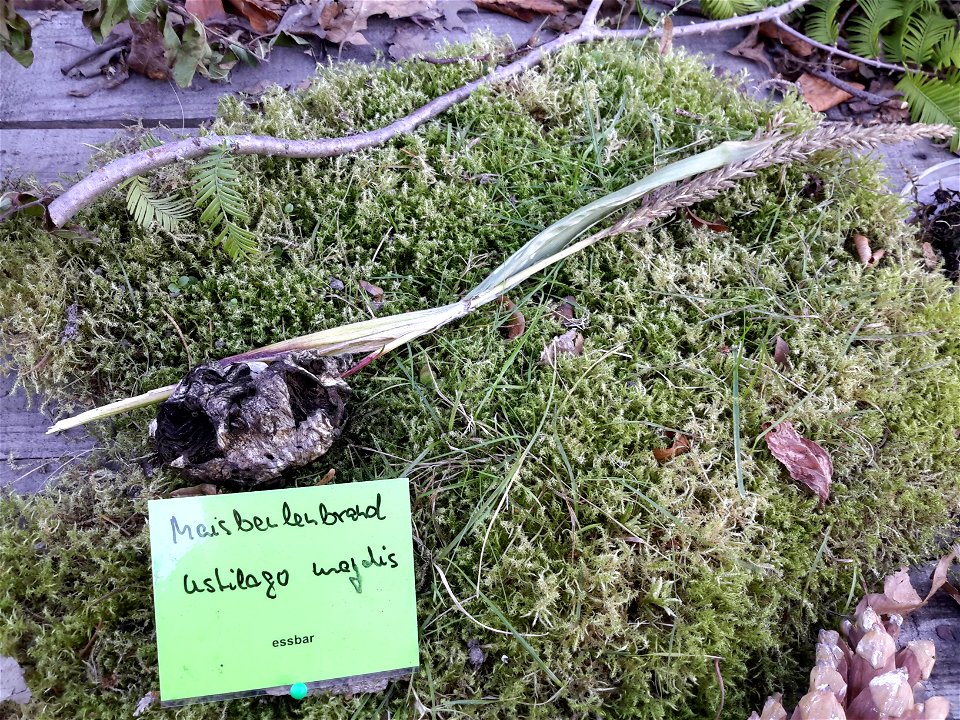 Maisbeulenbrand
Ustilago maydis
essbar